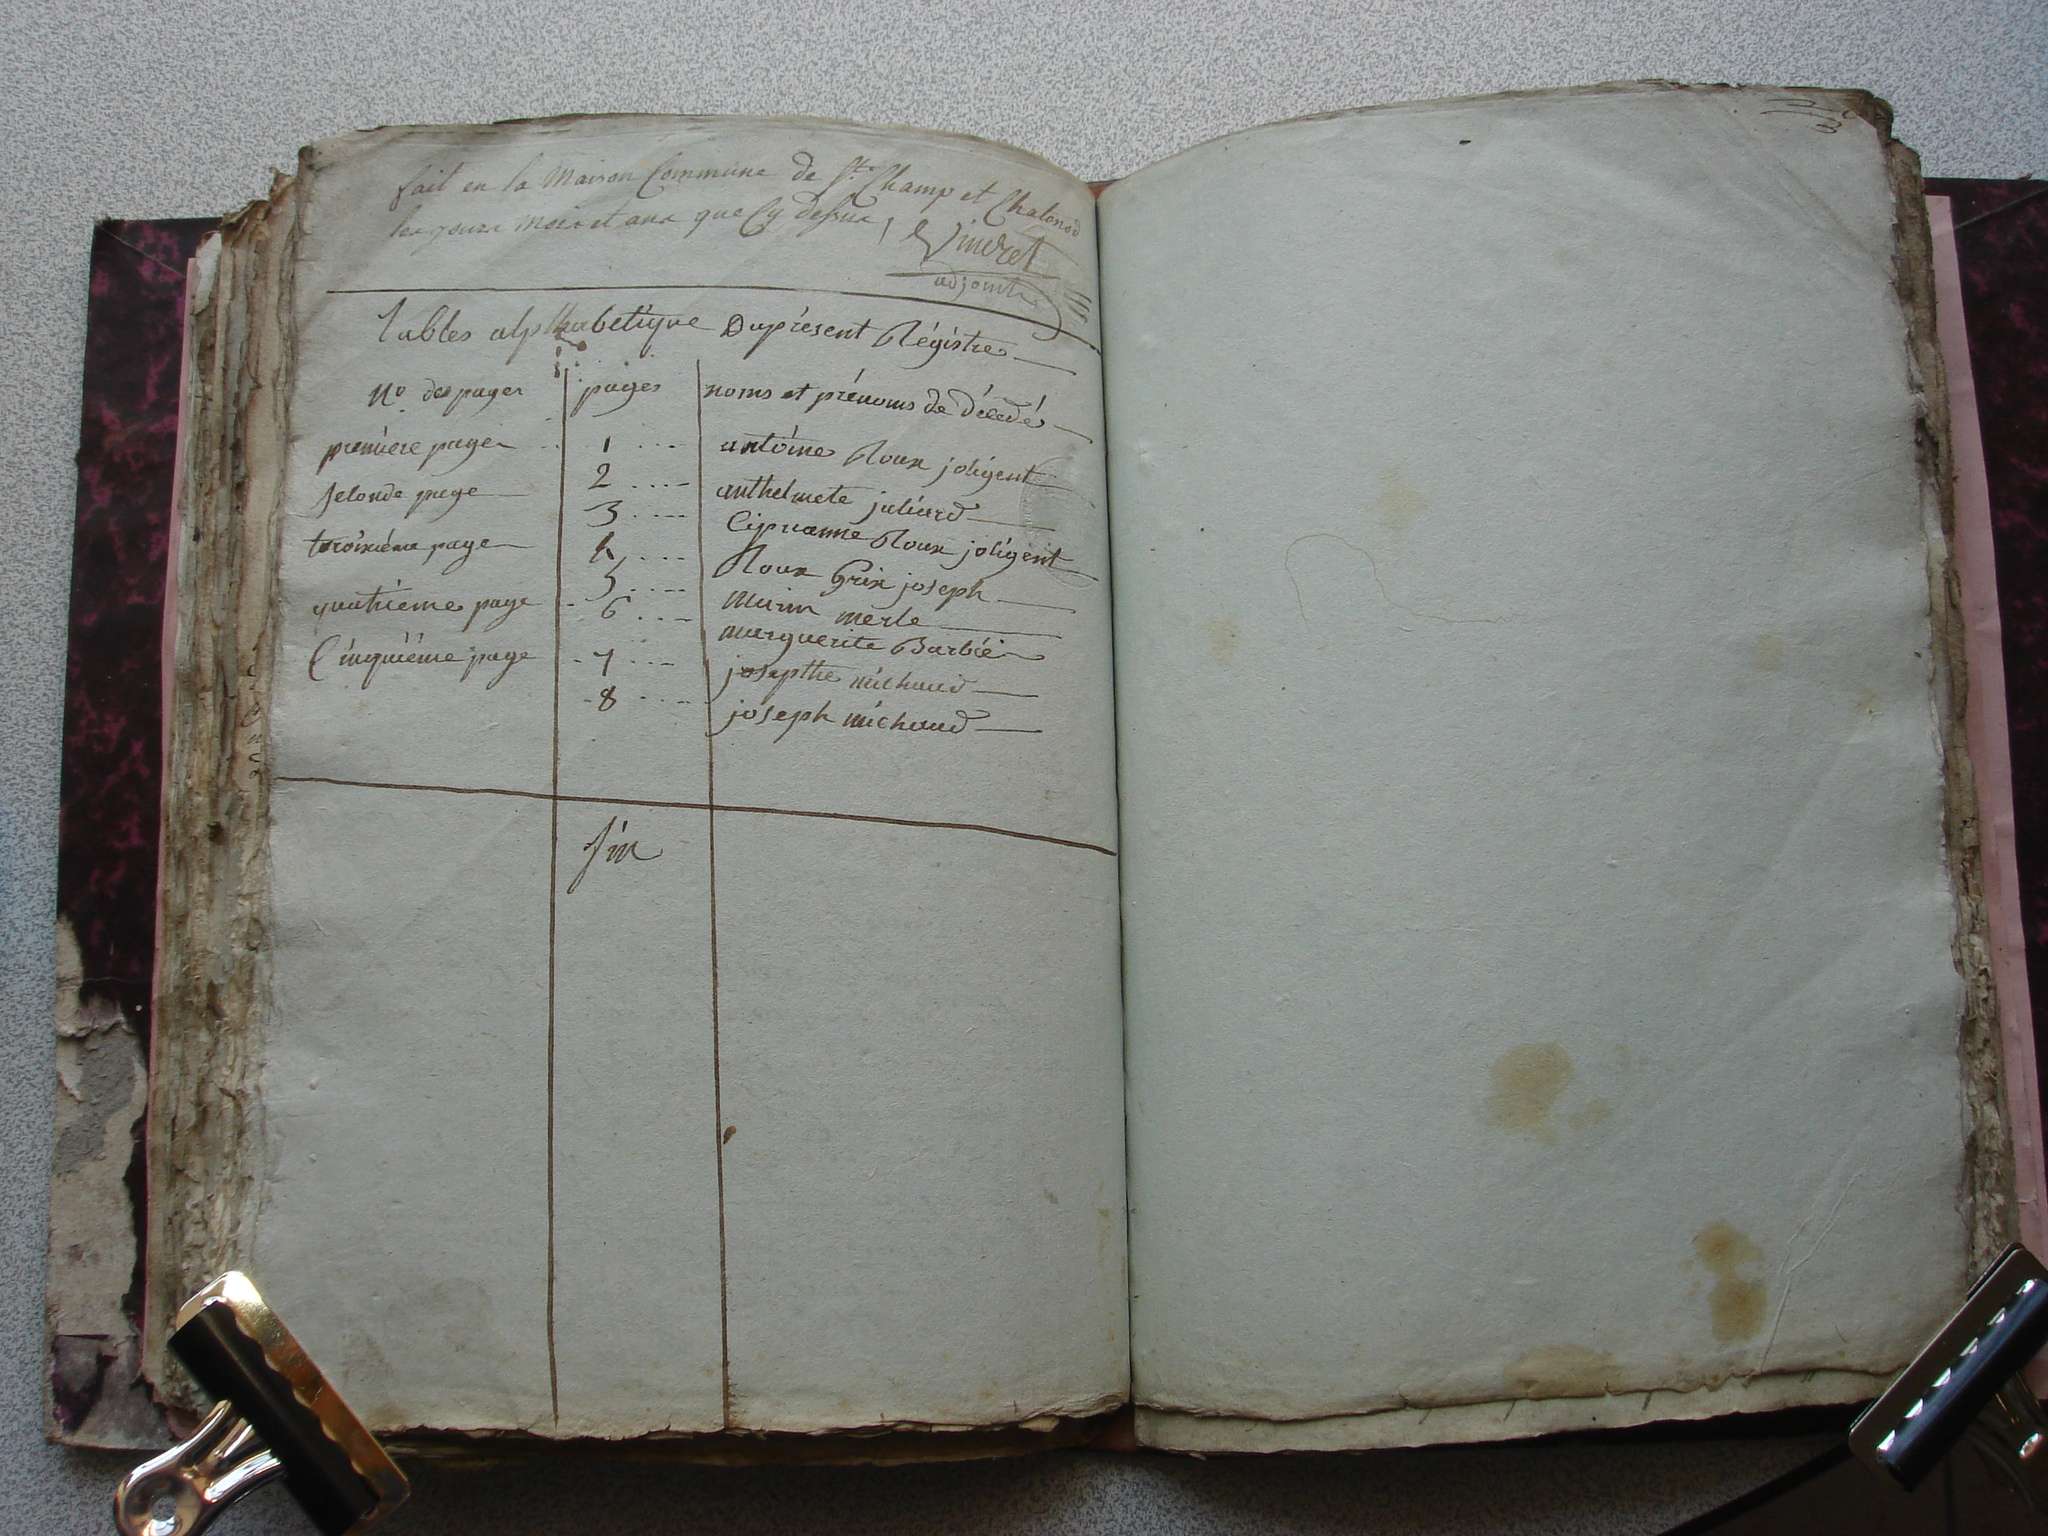 fait en la Maison Commune de St. Champ et Chatonod
les jours mois et ans que Cy dessus, Vindret
adjoint
Tables alphabetique Du présent Régistre
No. des pages pages noms et prénoms de décédé
premiere page 1 antoine Roux joligent
seconde page 2 anthelmete juliard
3 Ciprianne Roux joligent
troisiéme page 4 Roux Grix joseph
5 marin merle
quatrieme page 6 marguerite Barbié
Cinquiême page 7 josepthe michaud
8 joseph michaud
fin